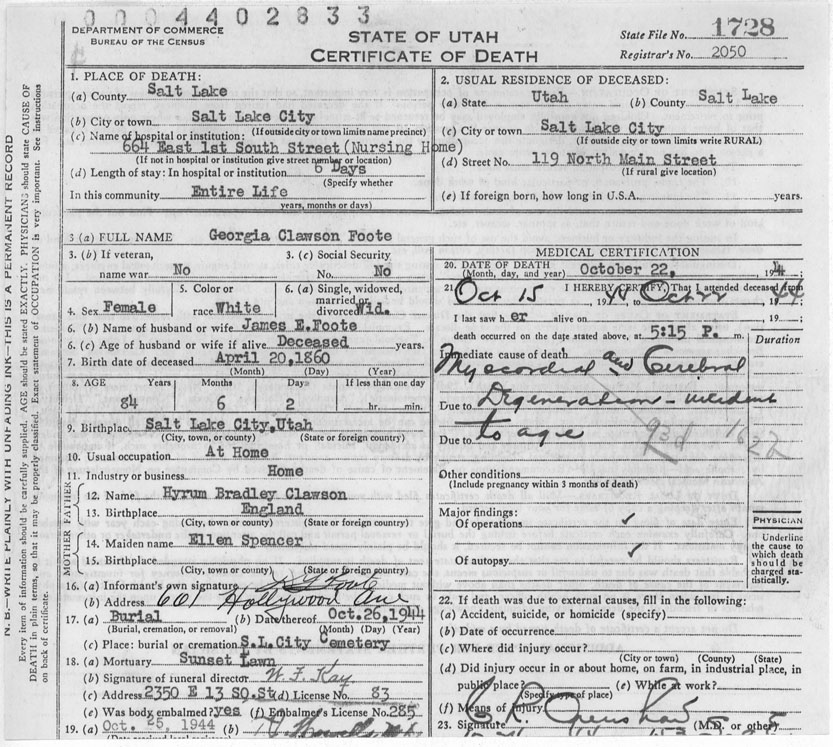 0004402833
DEPARTMENT OF COMMERCE
BUREAU OF THE CENSUS
STATE OF UTAH
CERTIFICATE OF DEATH
State File No. 1728
Registrar's No. 2050
N. B.—WRITE PLAINLY WITH UNFADING INK—THIS IS A PERMANENT RECORD
Every item of information should be carefully supplied. AGE should be stated EXACTLY. PHYSICIANS should state CAUSE OF
DEATH in plain terms, so that it may be properly classified. Exact statement of OCCUPATION is very important. See instructions
on back of certificate.
1. PLACE OF DEATH:
(a) County Salt Lake
(b) City or town Salt Lake City
(If outside city or town limits name precinct)
(c) Name of hospital or institution:
664 East 1st South Street (Nursing Home)
(If not in hospital or institution give street number or location)
(d) Length of stay: In hospital or institution 6 Days
(Specify whether
In this community Entire Life
years, months or days)
2. USUAL RESIDENCE OF DECEASED:
(a) State Utah (b) County Salt Lake
(c) City or town Salt Lake City
(If outside city or town limits write RURAL)
(d) Street No. 119 North Main Street
(If rural give location)
(e) If foreign born, how long in U.S.A. years.
3 (a) FULL NAME Georgia Clawson Foote
3. (b) If veteran, name war No
3. (c) Social Security No. No
4. Sex Female
5. Color or race White
6. (a) Single, widowed, married, or divorced Wid.
6. (b) Name of husband or wife James E.Foote
6. (c) Age of husband or wife if alive Deceased years.
7. Birth date of deceased April 20,1860
(Month) (Day) (Year)
8. AGE Years Months Days If less than one day
84 6 2 hr. min.
9. Birthplace Salt Lake City,Utah
(City, town, or county) (State or foreign country)
10. Usual occupation At Home
11. Industry or business Home
FATHER
12. Name Hyrum Bradley Clawson
13. Birthplace England
(City, town or county) (State or foreign country)
MOTHER
14. Maiden name Ellen Spencer
15. Birthplace
(City, town or county) (State or foreign country)
16. (a) Informant's own signature Foote
(b) Address 601 Hollywood Ave
17. (a) Burial (b) Date thereof Oct.26,1944
(Burial, cremation, or removal) (Month) (Day) (Year)
(c) Place: burial or cremation S.L.City Cemetery
18. (a) Mortuary Sunset Lawn
(b) Signature of funeral director W. F. Kay
(c) Address 2350 E 13 SO.St (d) License No. 83
(e) Was body embalmed? yes (f) Embalmer's License No. 285
19. (a) Oct. 25, 1944 (b)
MEDICAL CERTIFICATION
20. DATE OF DEATH
(Month, day, and year) October 22, 1944
21. I HEREBY CERTIFY, That I attended deceased from
Oct 15, 1944 to Oct 22, 1944
I last saw her alive on 19 ;
death occurred on the date stated above, at 5:15 P. m.
Duration
Immediate cause of death
Myocordial and Cerebral
Due to Degeneration - incident
Due to to age
93d 1622
Other conditions
(Include pregnancy within 3 months of death)
Major findings:
Of operations ✓
Of autopsy ✓
PHYSICIAN
Underline
the cause to
which death
should be
charged sta-
tistically.
22. If death was due to external causes, fill in the following:
(a) Accident, suicide, or homicide (specify)
(b) Date of occurrence
(c) Where did injury occur?
(City or town) (County) (State)
(d) Did injury occur in or about home, on farm, in industrial place, in
public place? (e) While at work?
(Specify type of place)
(f) Means of injury
23. Signature (M.D. or other)